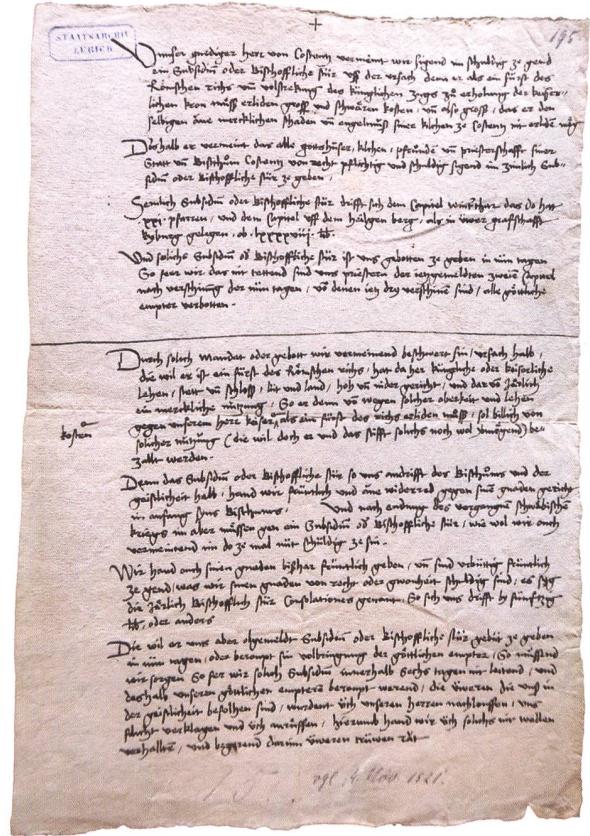 STAATSARCHIV
ZÜRICH
+
195
Unnser gnediger herr von Costentz vermeint wir sigend im schuldig ze gend
ein Subsidiu oder Bischoffliche stür uff der ursach denn er als ein fürst des
Römschen richs
lichen kron müss erliden gross und schwären kosten
selbigen äne mercklichen schaden
Deshalb er vermeint das alle gottshüser, kilchen, pfründen
Statt Bischtum Costentz von recht pflichtig und schuldig sigend im
oder Bischoffliche stür ze geben,
Semlich Subsidiu oder Bischoffliche stür drifft sich dem Capitel winterthur das do hatt
xxj. pfarren, und dem Capitel uff dem heilgen berg, als in üwer graffschafft
kyburg gelegen, ob. lxxxxviij. lb.
Und solichs Subsidiu Bischoffliche stür ist uns gebotten ze geben in nün tagen
So ferr wir das nit tettend sind uns priestern der zweien Capitel
nach verschinung der nün tagen, denen iez dry verschinen sind, alle göttliche
empter verbotten.
Durch solich Mandat oder gebott wir vermeinend beschwert sin, ursach halb,
die wil er ist ein fürst des Römschen richs, hat da her küngliche oder keiserliche
Lehen, stett schloss, lüt und land, hoch nider gericht, und dar Järlich
ein merckliche nützung, So er denn wegen solcher oberkeit und Lehen
gegen unserm herr keiser, als ein fürst des richs erliden müss, sol billich von
kosten
solicher nützung (die wil doch er und das stifft solichs noch wol vermögend) be-
zalt werden.
Denn das Subsidiu oder Bischoffliche stür so uns andrifft des Bischtums und der
geistlicheit halb, hand wir früntlich und äne widerred gegen sinen gnaden gericht
in anfang sins Bischtums, Und nach endung des vergangnen schwäbischen
kriegs im aber müssen gen ein Subsidiu Bischoffliche stür, wie wol wir ouch
vermeintend im do ze mal nüt schuldig ze sin.
Wir hand ouch sinen gnaden bisshar früntlich geben, sind urbüttig früntlich
ze gend, was wir sinen gnaden von recht oder gwonheit schuldig sind, es syg
die Järlich Bischofflich stür Consolationes genant, So sich uns drifft by fünftzig
lb, oder anders
Die wil er uns aber obgemeldt Subsidiu oder Bischoffliche stür gebüt ze geben
in nün tagen, oder beroupt sin volbringung der göttlichen empter, So müssend
wir sorgen So ferr wir solich Subsidiu innerhalb Sechs tagen nit leitend, und
deshalb unseren göttlichen emptern beroupt werend, die üweren die uns in
der geistlicheit befolhen sind, wurdent üch unseren herren nachlouffen, uns
villicht verklagen und üch anrüffen, hierumb hand wir üch solichs nit wellen
verhalten, und begerend darum üweren trüwen rät
vgl. 14 Nov. 1521.